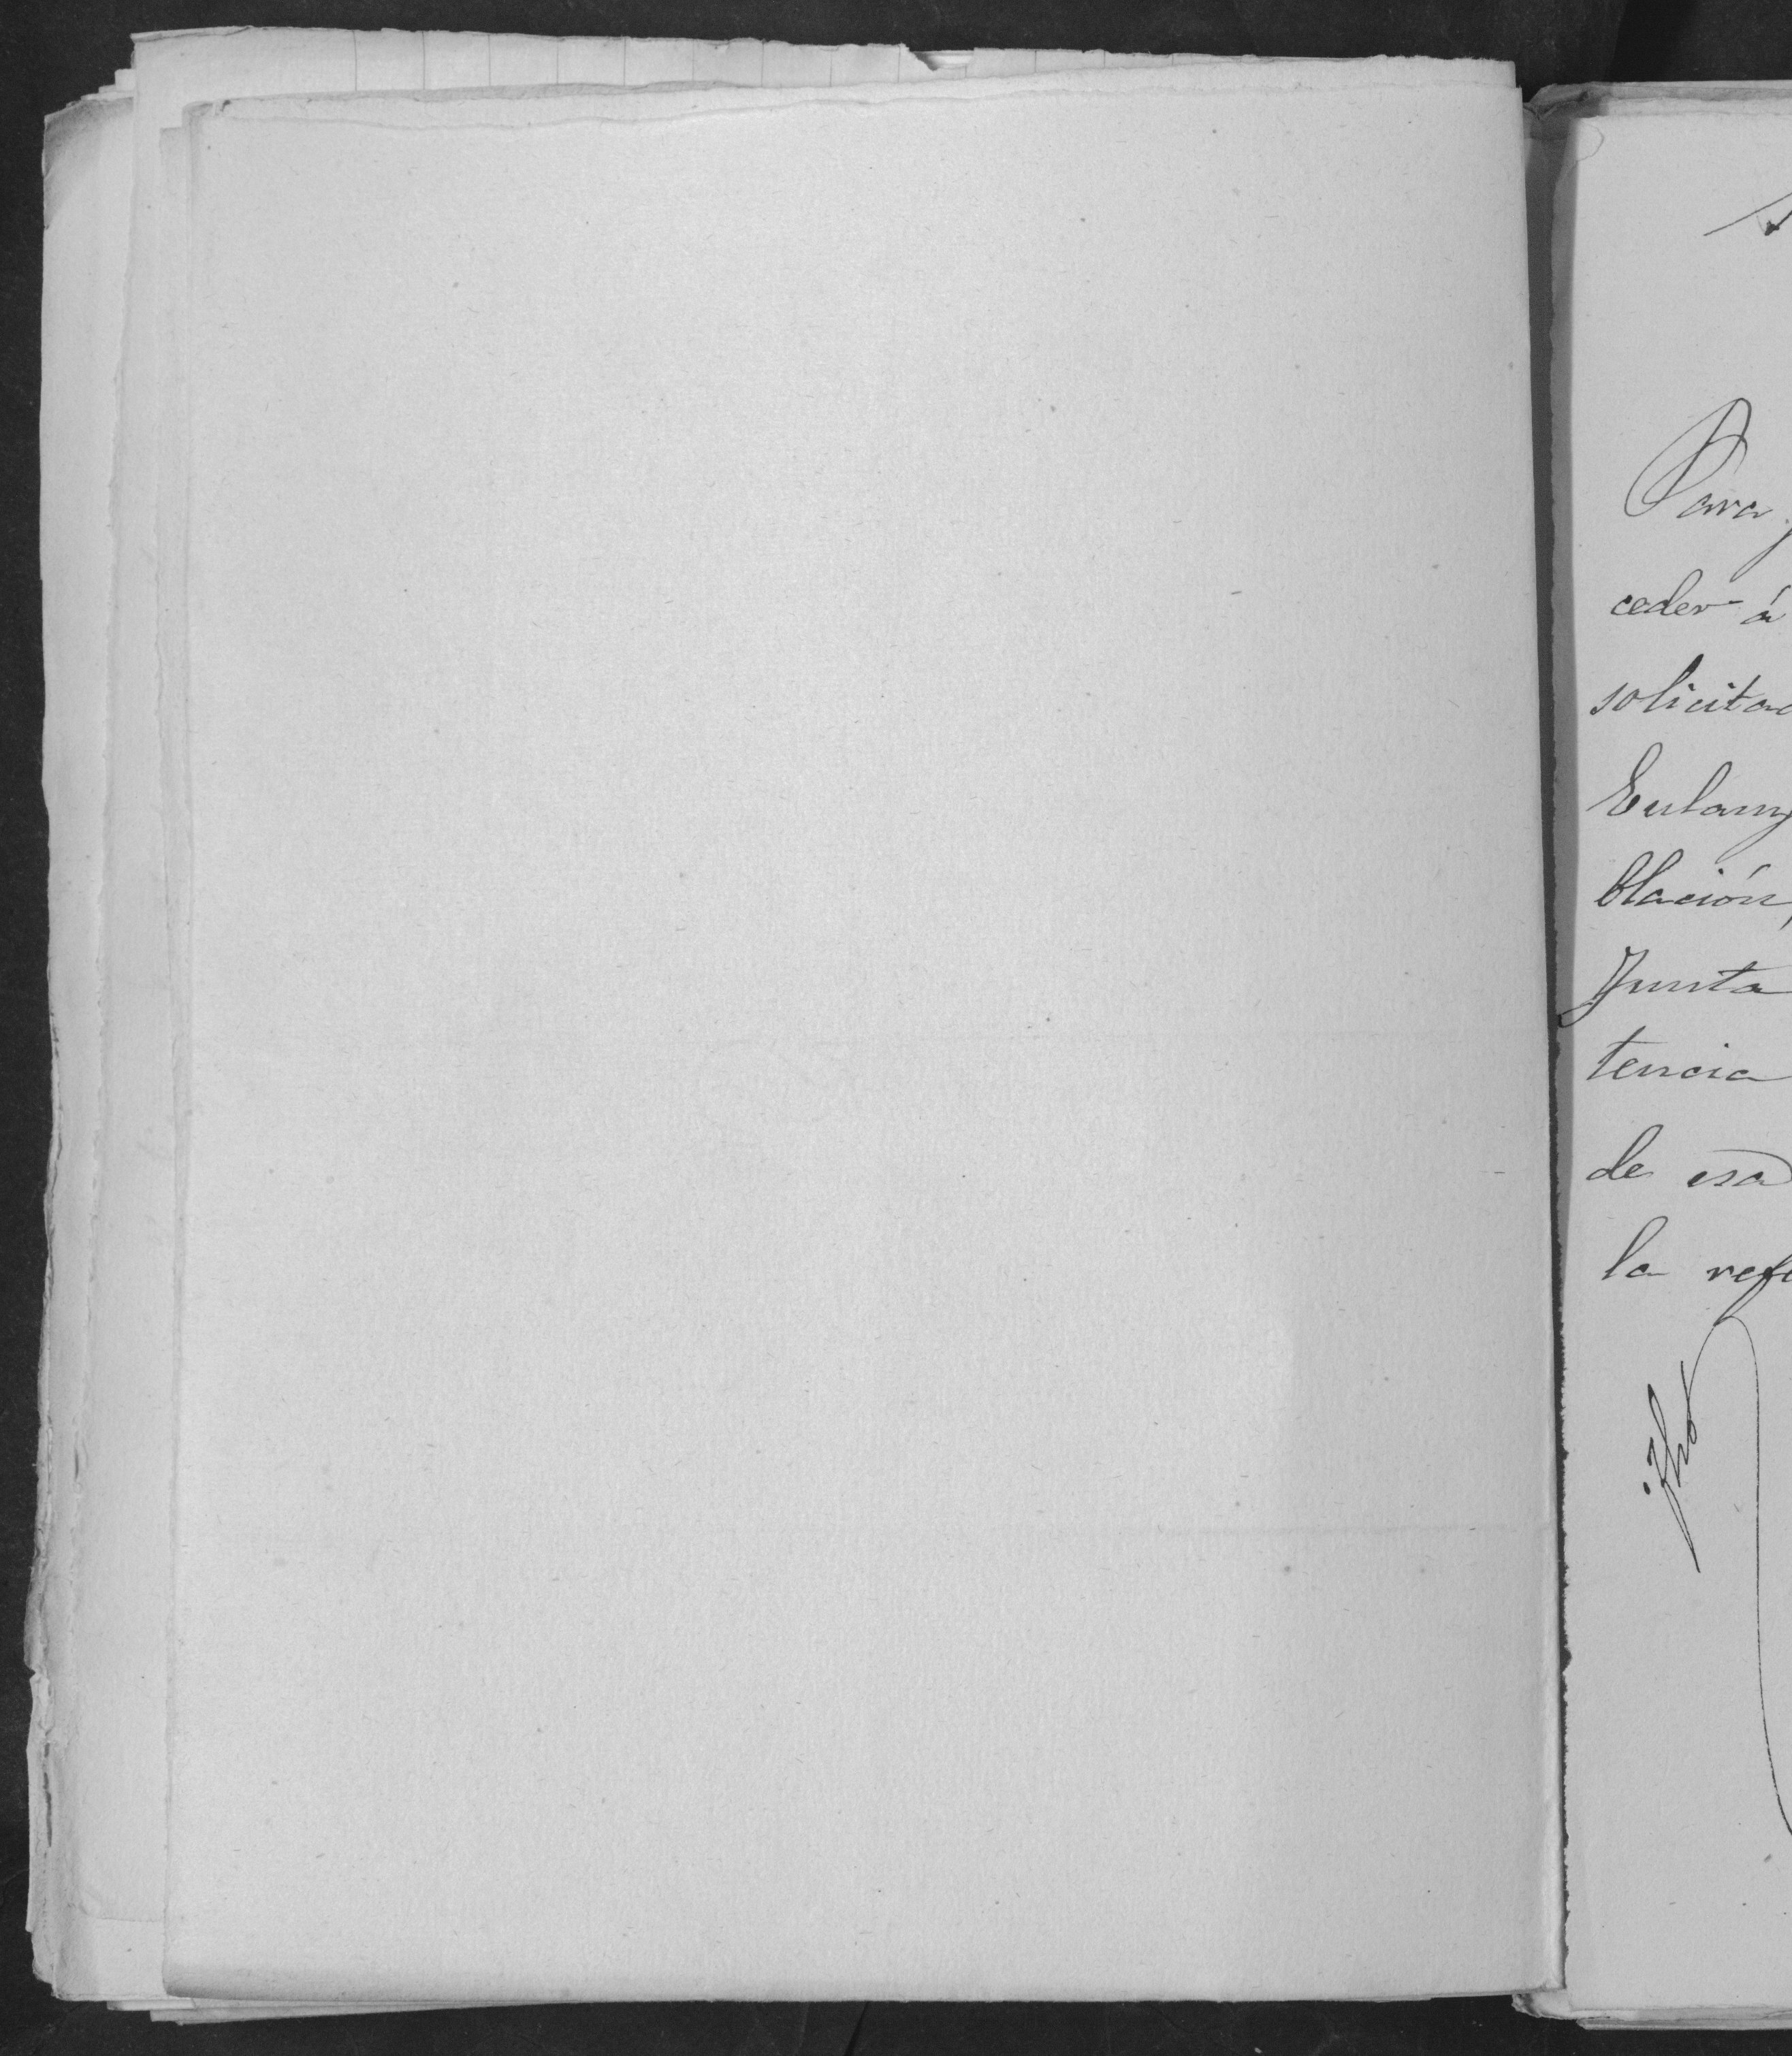 Para
ceder á
solicitad
Eulam
blación,
Junta
tencia
de esa
la refe